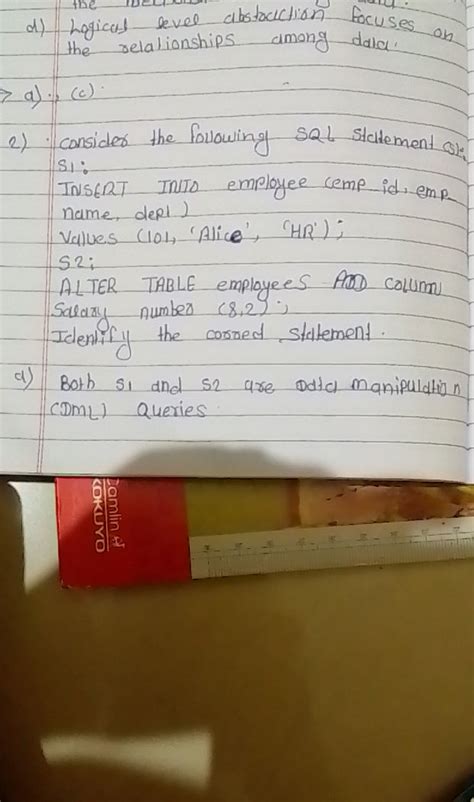 the
d) Logical level abstraction focuses on
the relationships among data.
→ a) ., (c).
2) consider the following SQL statement
S1:
INSERT INTO employee (emp_id, emp_
name, dept)
values (101, 'Alice', 'HR');
S2:
ALTER TABLE employees ADD column
Salary number (8,2);
Identify the correct statement.
a) Both S1 and S2 are Data manipulation
(DML) Queries.
Camlin
KOKUYO